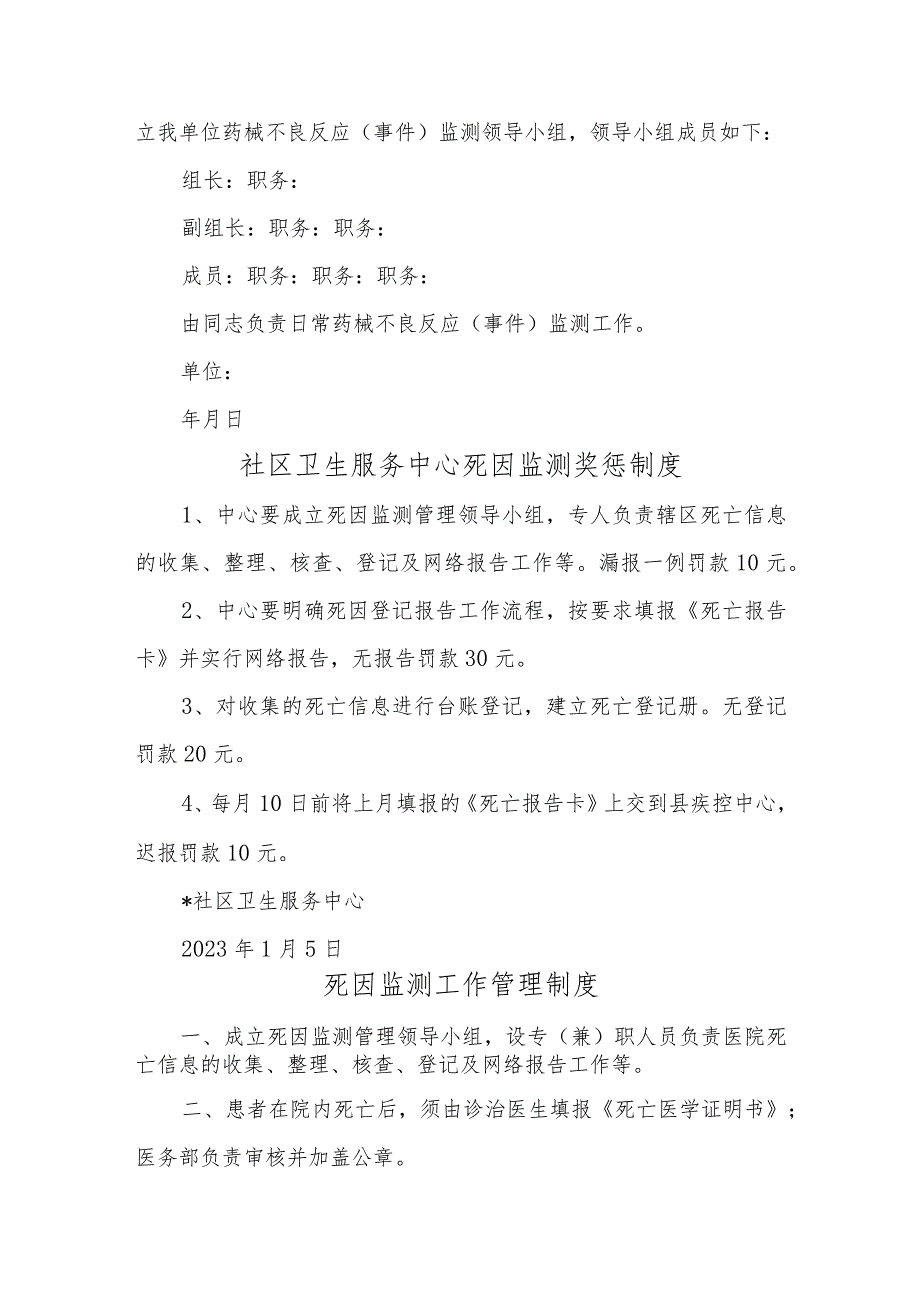 立我单位药械不良反应（事件）监测领导小组，领导小组成员如下：
组长：职务：
副组长：职务：职务：
成员：职务：职务：职务：
由同志负责日常药械不良反应（事件）监测工作。
单位：
年月日
社区卫生服务中心死因监测奖惩制度
1、中心要成立死因监测管理领导小组，专人负责辖区死亡信息
的收集、整理、核查、登记及网络报告工作等。漏报一例罚款10元。
2、中心要明确死因登记报告工作流程，按要求填报《死亡报告
卡》并实行网络报告，无报告罚款30元。
3、对收集的死亡信息进行台账登记，建立死亡登记册。无登记
罚款20元。
4、每月10日前将上月填报的《死亡报告卡》上交到县疾控中心，
迟报罚款10元。
*社区卫生服务中心
2023年1月5日
死因监测工作管理制度
一、成立死因监测管理领导小组，设专（兼）职人员负责医院死
亡信息的收集、整理、核查、登记及网络报告工作等。
二、患者在院内死亡后，须由诊治医生填报《死亡医学证明书》；
医务部负责审核并加盖公章。